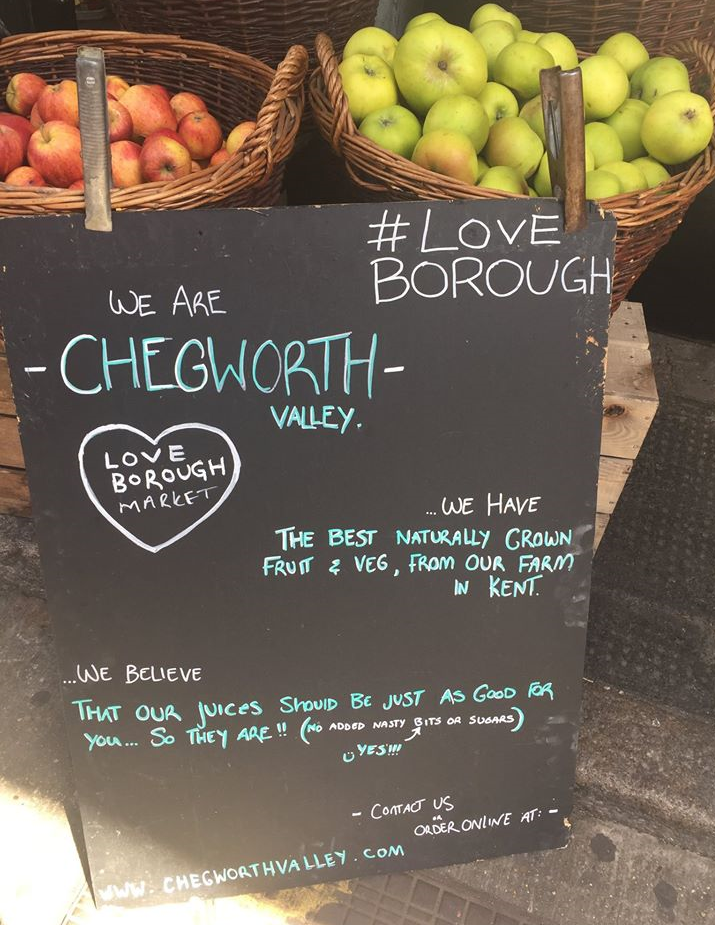 # LOVE
BOROUGH
WE ARE
- CHEGWORTH -
VALLEY.
LOVE
BOROUGH
MARKET
...WE HAVE
THE BEST NATURALLY GROWN
FRUIT & VEG, FROM OUR FARM
IN KENT.
...WE BELIEVE
THAT OUR JUICES SHOULD BE JUST AS GOOD FOR
YOU... SO THEY ARE!! (NO ADDED NASTY BITS OR SUGARS)
YES!!!
- CONTACT US
OR
ORDER ONLINE AT: -
WWW.CHEGWORTHVALLEY.COM